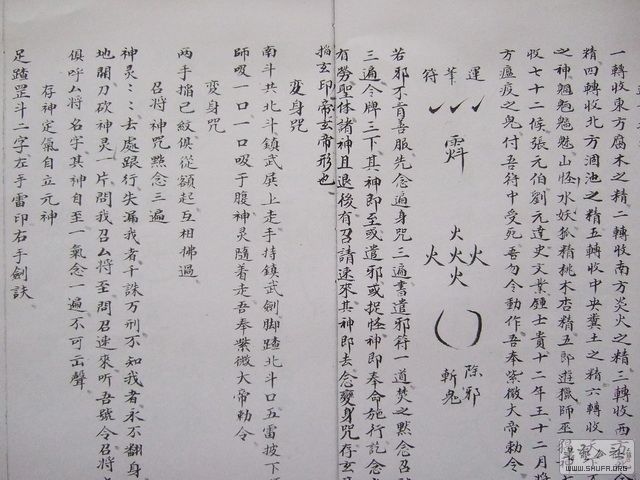 一轉收東方腐木之精二轉收南方炎火之精三轉收西方
精四轉收北方涸池之精五轉收中央糞土之精六轉收
之神魍魎魑魅山怪水妖狐精桃木杏精五郎遊獵師巫
收七十二候張元伯劉元達史文業鍾士貴十二年王十二月將
方瘟疫之鬼付吾符中受死吾勿令動作吾奉紫微大帝勅令
運筆符
火火火火火
除邪
斬鬼
若邪不肯善服先念遍身咒三遍書遣邪符一道焚之默念召
三遍令牌三下其神即至或遣邪或捉怪神即奉命施行訖念
有勞聖体諸神且退後有召請速來其神即去念變身咒存玄
掐玄印帝玄帝形也
變身咒
南斗共北斗鎮武展上走手持鎮武劍脚踏北斗口五雷披下
師吸一口一口吸于腹神灵隨着走吾奉紫微大帝勅令
變身咒
兩手掐己紋俱從額起互相拂過
召將神咒默念三遍
神灵〻〻去處跟行失漏我者千誅万刑不知我者永不翻身
地開刀砍神灵一片問我召厶將至問召速來听吾號令召將
俱呼厶將名字其神自至一氣念一遍不可出聲
存神定氣自立元神
足踏罡斗二字左手雷印右手劍訣
WWW.SHUFA.ORG